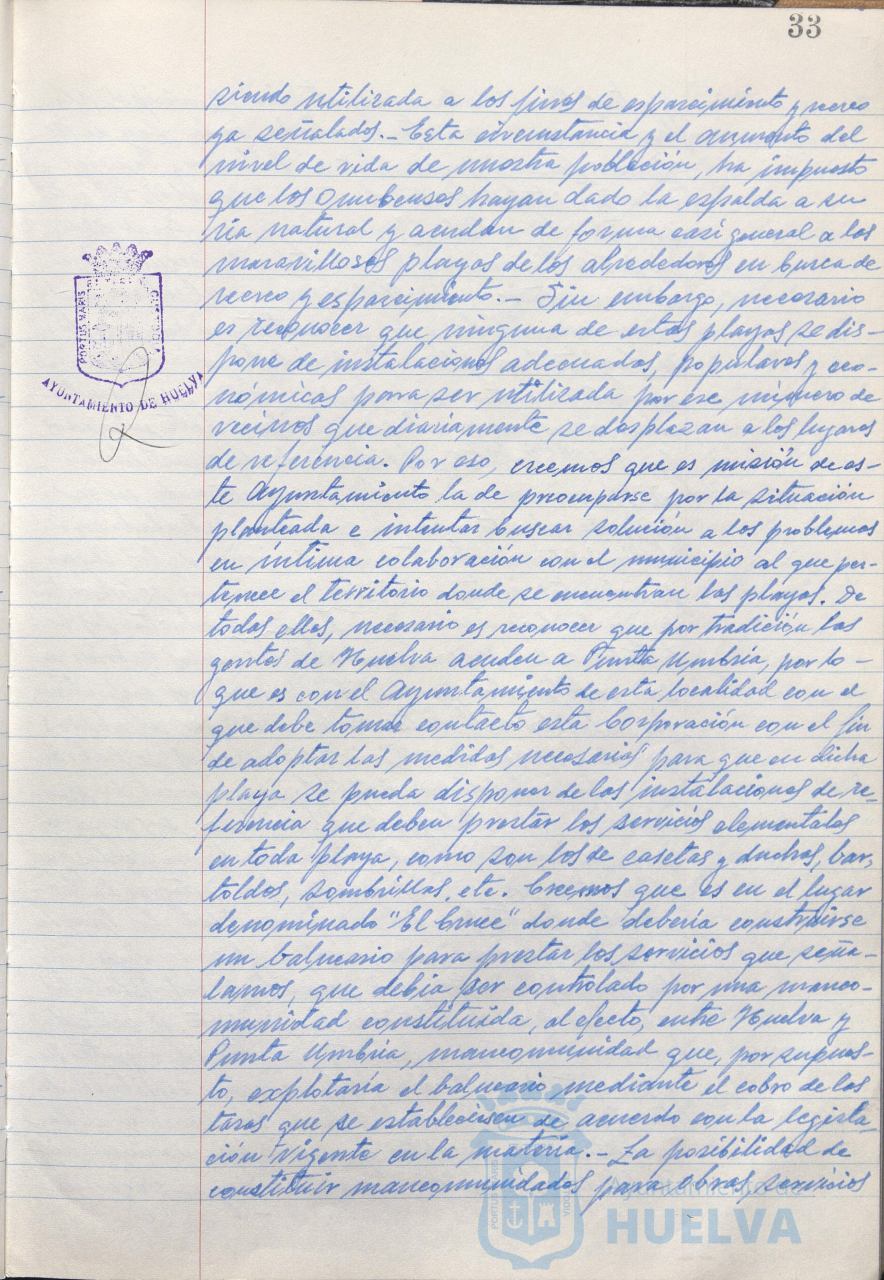 33
siendo utilizada a los fines de esparcimiento y recreo
ya señalados.- Esta circunstancia y el aumento del
nivel de vida de nuestra población, ha impuesto
que los onubenses hayan dado la espalda a su
ría natural y acudan de forma casi general a las
maravillosas playas de los alrededores en busca de
recreo y esparcimiento.- Sin embargo, necesario
es reconocer que ninguna de estas playas se dis-
pone de instalaciones adecuadas, populares y eco-
nómicas para ser utilizada por ese número de
vecinos que diariamente se desplazan a los lugares
de referencia. Por eso, creemos que es misión de es-
te Ayuntamiento la de preocuparse por la situación
planteada e intentar buscar solución a los problemas
en íntima colaboración con el municipio al que per-
tenece el territorio donde se encuentran las playas. De
todas ellas, necesario es reconocer que por tradición las
gentes de Huelva acuden a Punta Umbría, por lo-
que es con el Ayuntamiento de esta localidad con el
que debe tomar contacto esta Corporación con el fin
de adoptar las medidas necesarias para que en dicha
playa se pueda disponer de las instalaciones de re-
ferencia que deben prestar los servicios elementales
en toda playa, como son los de casetas y duchas, bar,
toldos, sombrillas, etc. Creemos que es en el lugar
denominado "El Cruce" donde debería construirse
un balneario para prestar los servicios que seña-
lamos, que debía ser controlado por una manco-
munidad constituida, al efecto, entre Huelva y
Punta Umbría, mancomunidad que, por supues-
to, explotaría el balneario mediante el cobro de las
tasas que se estableciesen de acuerdo con la legisla-
ción vigente en la materia.- La posibilidad de
constituir mancomunidades para obras, servicios
PORTUS MARIS
AYUNTAMIENTO DE HUELVA
Ayuntamiento de
HUELVA